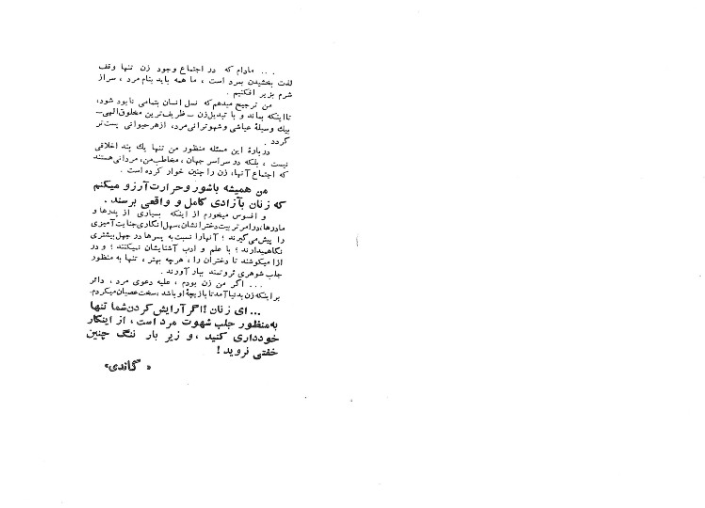 ... مادام که در اجتماع وجود زن تنها وقف
لذت بخشیدن بمرد است ، ما همه باید بنام مرد ، سراز
شرم بزیر افکنیم .
من ترجیح میدهم که نسل انسان بتمامی نابود شود،
تااینکه بماند و با تبدیل زن ــ ظریف‌ترین مخلوق الهی ــ
بیك وسیلهٔ عیاشی وشهوترانی مرد، ازهرحیوانی پست‌تر
گردد .
دربارهٔ این مسئله منظور من تنها یك پند اخلاقی
نیست ، بلکه در سراسر جهان ، مخاطب من، مردانی هستند
که اجتماع آنها، زن را چنین خوار کرده است .
من همیشه باشور وحرارت آرزو میکنم
که زنان بآزادی کامل و واقعی برسند .
و افسوس میخورم از اینکه بسیاری از پدرها و
مادرها، درامر تربیت دخترانشان، سهل‌انگاری جنایت‌آمیزی
را پیش می‌گیرند ؛ آنهارا نسبت به پسرها در جهل بیشتری
نگاهمیدارند ؛ با علم و ادب آشنایشان نمیکنند ؛ و در
ازا میکوشند تا دختران را ، هرچه بهتر ، تنها به منظور
جلب شوهری ثروتمند ببار آورند .
... اگر من زن بودم ، علیه دعوی مرد ، دائر
براینکه زن بدنیا آمده تا بازیچهٔ او باشد ، سخت عصیان میکردم.
... ای زنان !اگر آرایش کردن شما تنها
به‌منظور جلب شهوت مرد است ، از اینکار
خودداری کنید ، و زیر بار ننگ چنین
خفتی نروید !
« گاندی»